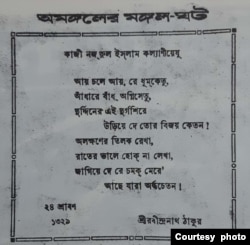 অমঙ্গলের মঙ্গল-ঘট
কাজী নজরুল ইস্‌লাম কল্যাণীয়েষু
আয় চলে আয়, রে ধুমকেতু,
আঁধারে বাঁধ্ অগ্নিসেতু,
দুর্দ্দিনের এই দুর্গশিরে
উড়িয়ে দে তোর বিজয় কেতন!
অলক্ষণের তিলক রেখা,
রাতের ভালে হোক্ না লেখা,
জাগিয়ে দে রে চমক্ মেরে'
আছে যারা অর্দ্ধচেতন!
২৪ শ্রাবণ
১৩২৯
শ্রীরবীন্দ্রনাথ ঠাকুর
Courtesy photo